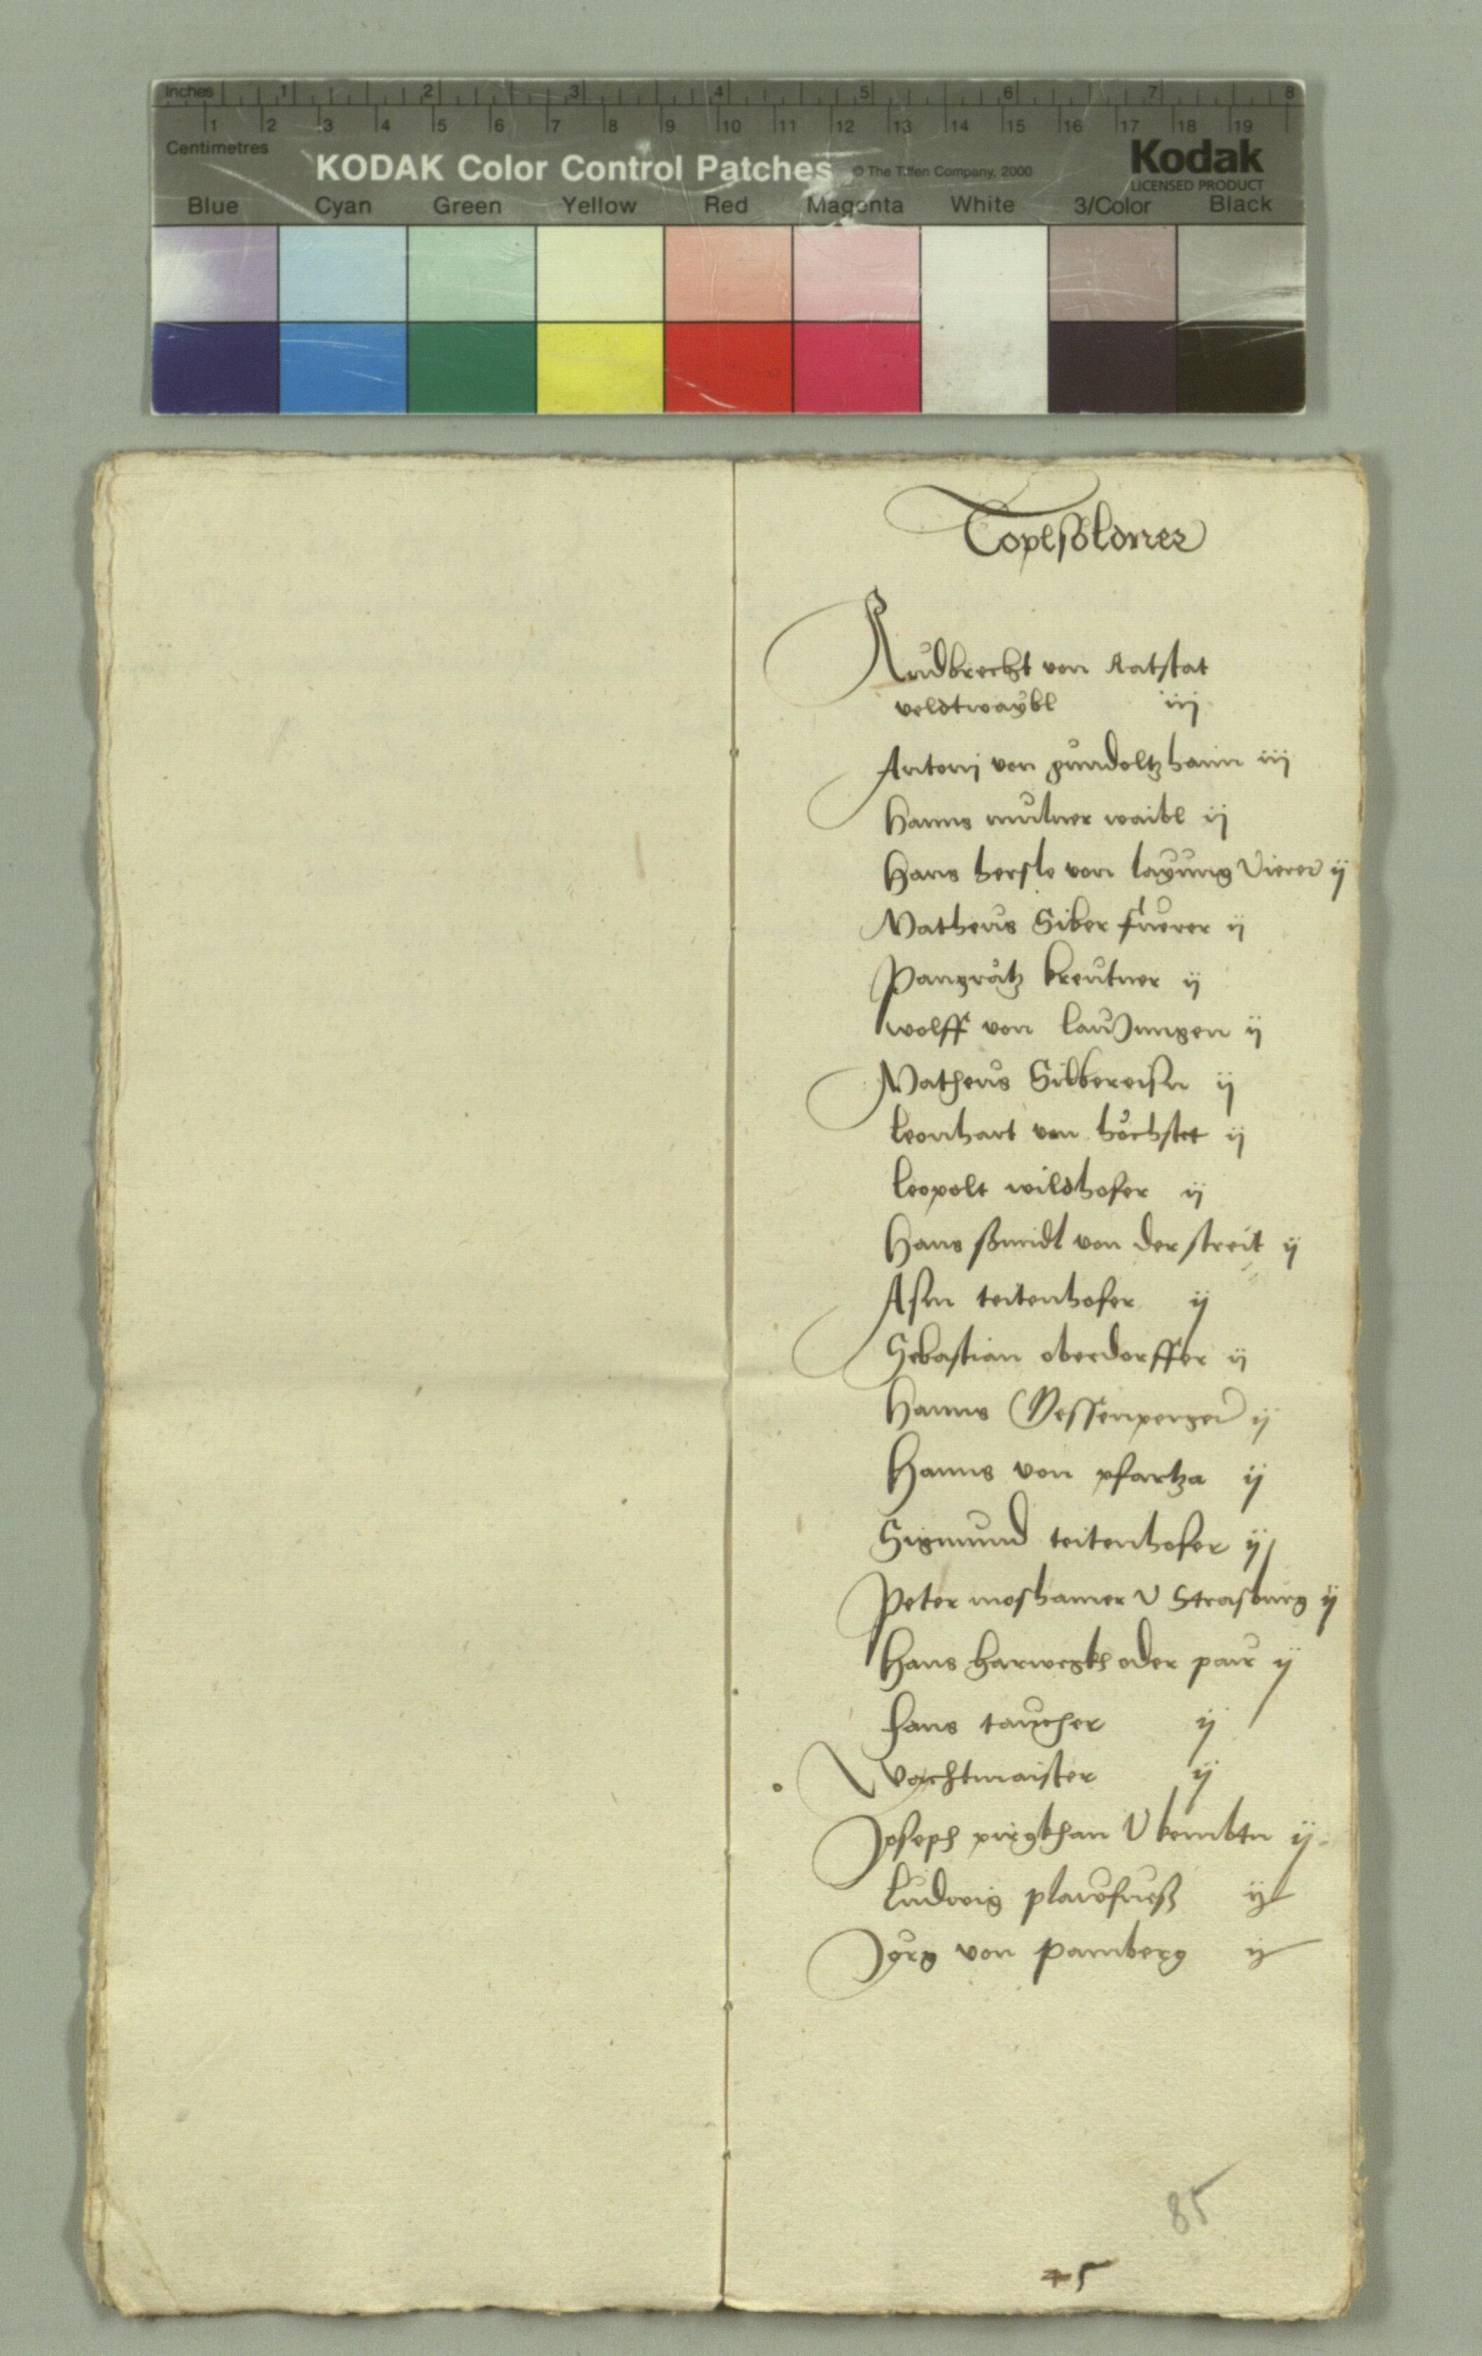 Inches 1 2 3 4 5 6 7 8
1 2 3 4 5 6 7 8 9 10 11 12 13 14 15 16 17 18 19
Centimetres
KODAK Color Control Patches © The Tiffen Company, 2000 Kodak
LICENSED PRODUCT
Blue Cyan Green Yellow Red Magenta White 3/Color Black
Toplsöldner
Rudbrecht von Ratstat
veldtwaybl iij
Antonj von gundoltzhaim iij
Hanns mulner waibl ij
Hans hersle von ij
Matheus Siber fuerer ij
Pangratz kreutner ij
wolff von ij
Matheus Silbereisn ij
Leonhart von höchstet ij
Leopolt wildhofer ij
Hans von der streit ij
Asm teitenhofer ij
Sebastian oberdorffer ij
Hanns Gessenperger ij
Hanns von pfartza ij
Sigmund teitenhofer ij
Peter moshamer v Strasburg ij
Hans oder paur ij
Hans taucher ij
Wachtmaister ij
Joseph v kembtn ij
Ludwig plavfuesz ij
Jörg von Pamberg ij
85
45